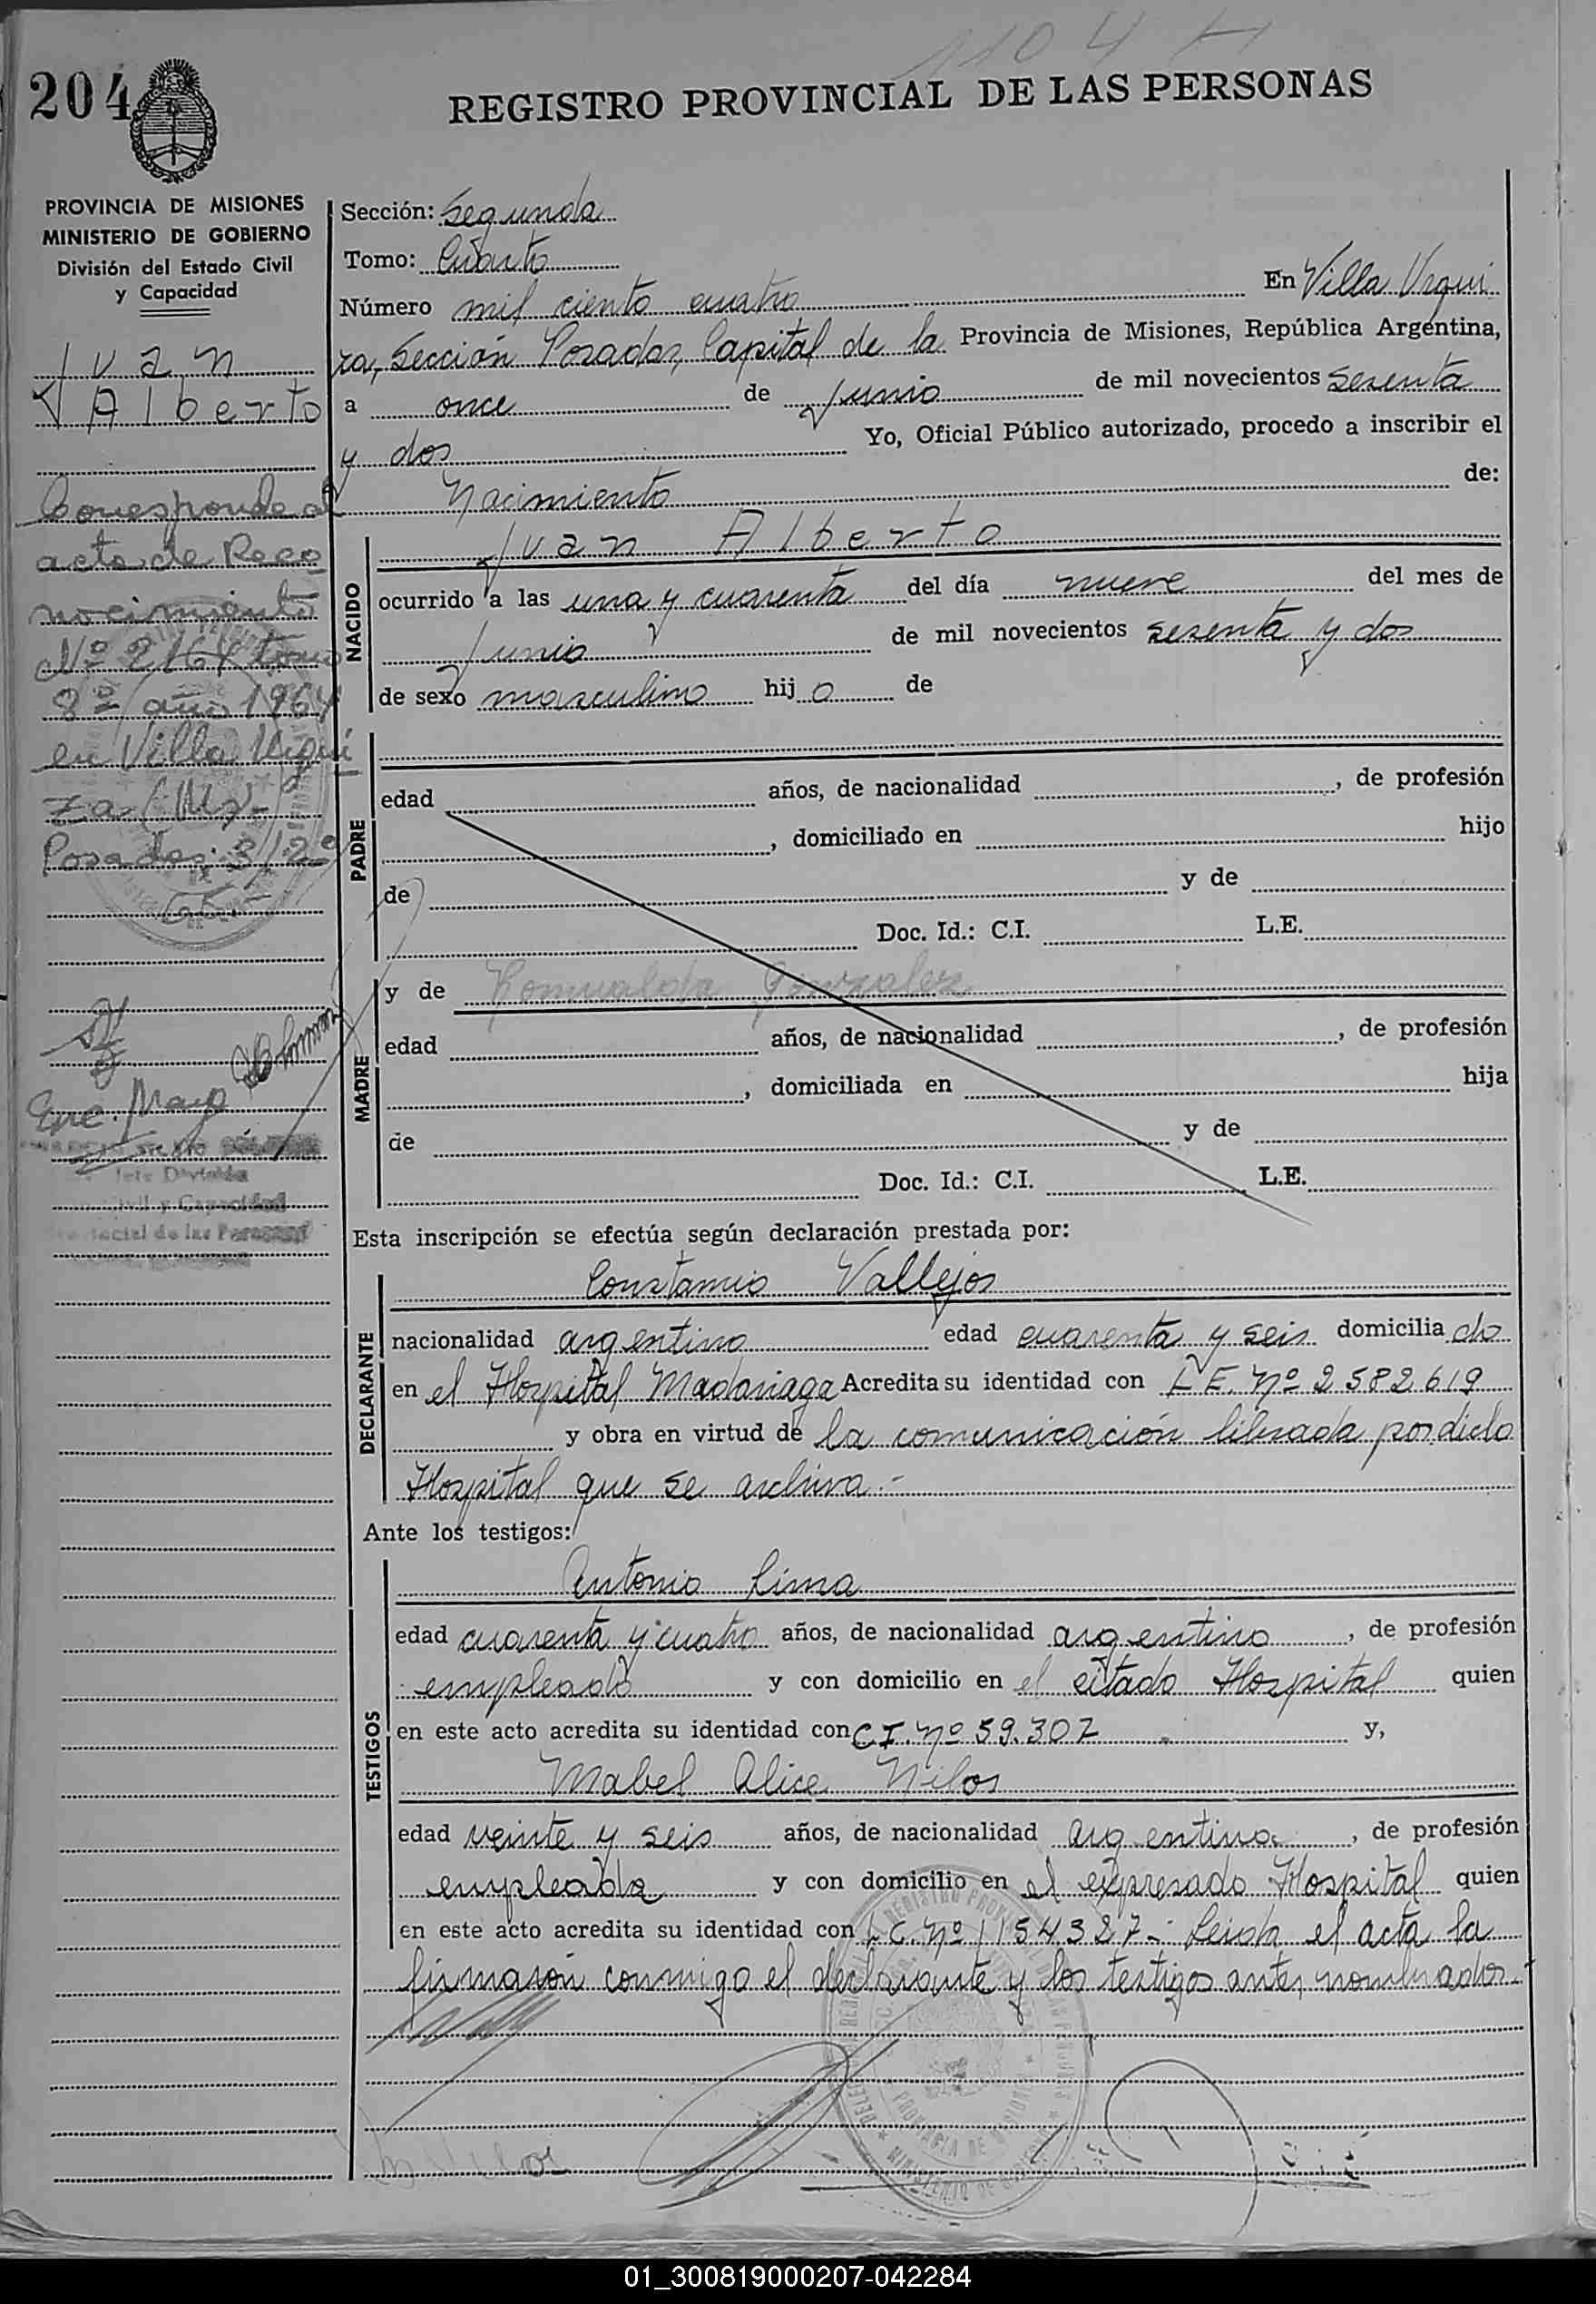 1104
204
REGISTRO PROVINCIAL DE LAS PERSONAS
PROVINCIA DE MISIONES
MINISTERIO DE GOBIERNO
División del Estado Civil
y Capacidad
Juan
Alberto
Corresponde al
acta de Reco
nocimiento
Nº 2164 tomo
8º año 1964
en Villa Urqui
za (Ms)-
Posadas: 3/2º
65-
Enc. Mayo
Jefe División
Civil y Capacidad
Provincial de las Personas
Sección: Segunda
Tomo: Cuarto
Número mil ciento cuatro En Villa Urqui
za, Sección Posadas, Capital de la Provincia de Misiones, República Argentina,
a once de Junio de mil novecientos sesenta
y dos Yo, Oficial Público autorizado, procedo a inscribir el
Nacimiento de:
NACIDO
Juan Alberto
ocurrido a las una y cuarenta del día nueve del mes de
Junio de mil novecientos sesenta y dos
de sexo masculino hij o de
PADRE
edad años, de nacionalidad , de profesión
, domiciliado en hijo
de y de
Doc. Id.: C.I. L.E.
MADRE
y de Romualda Gonzalez
edad años, de nacionalidad , de profesión
, domiciliada en hija
de y de
Doc. Id.: C.I. L.E.
Esta inscripción se efectúa según declaración prestada por:
DECLARANTE
Constancio Vallejos
nacionalidad argentino edad cuarenta y seis domicilia do
en el Hospital Madariaga Acredita su identidad con L.E. Nº 2582619
y obra en virtud de la comunicación librada por dicho
Hospital que se archiva.-
Ante los testigos:
TESTIGOS
Antonio Lima
edad cuarenta y cuatro años, de nacionalidad argentino , de profesión
empleado y con domicilio en el citado Hospital quien
en este acto acredita su identidad con C.I. Nº 59.307 y,
Mabel Alice Nilos
edad veinte y seis años, de nacionalidad argentina , de profesión
empleada y con domicilio en el expresado Hospital quien
en este acto acredita su identidad con L.C. Nº 1154327.- Leida el acta la
firmaron conmigo el declarante y los testigos antes nombrados.-
01_300819000207-042284